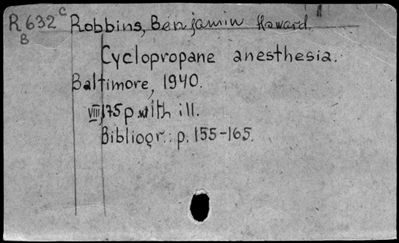 R 632 c Robbins, Benjamin Howard.
B
Cyclopropane anesthesia.
Baltimore, 1940.
VIII, 175 p. with ill.
Bibliogr.: p. 155-165.